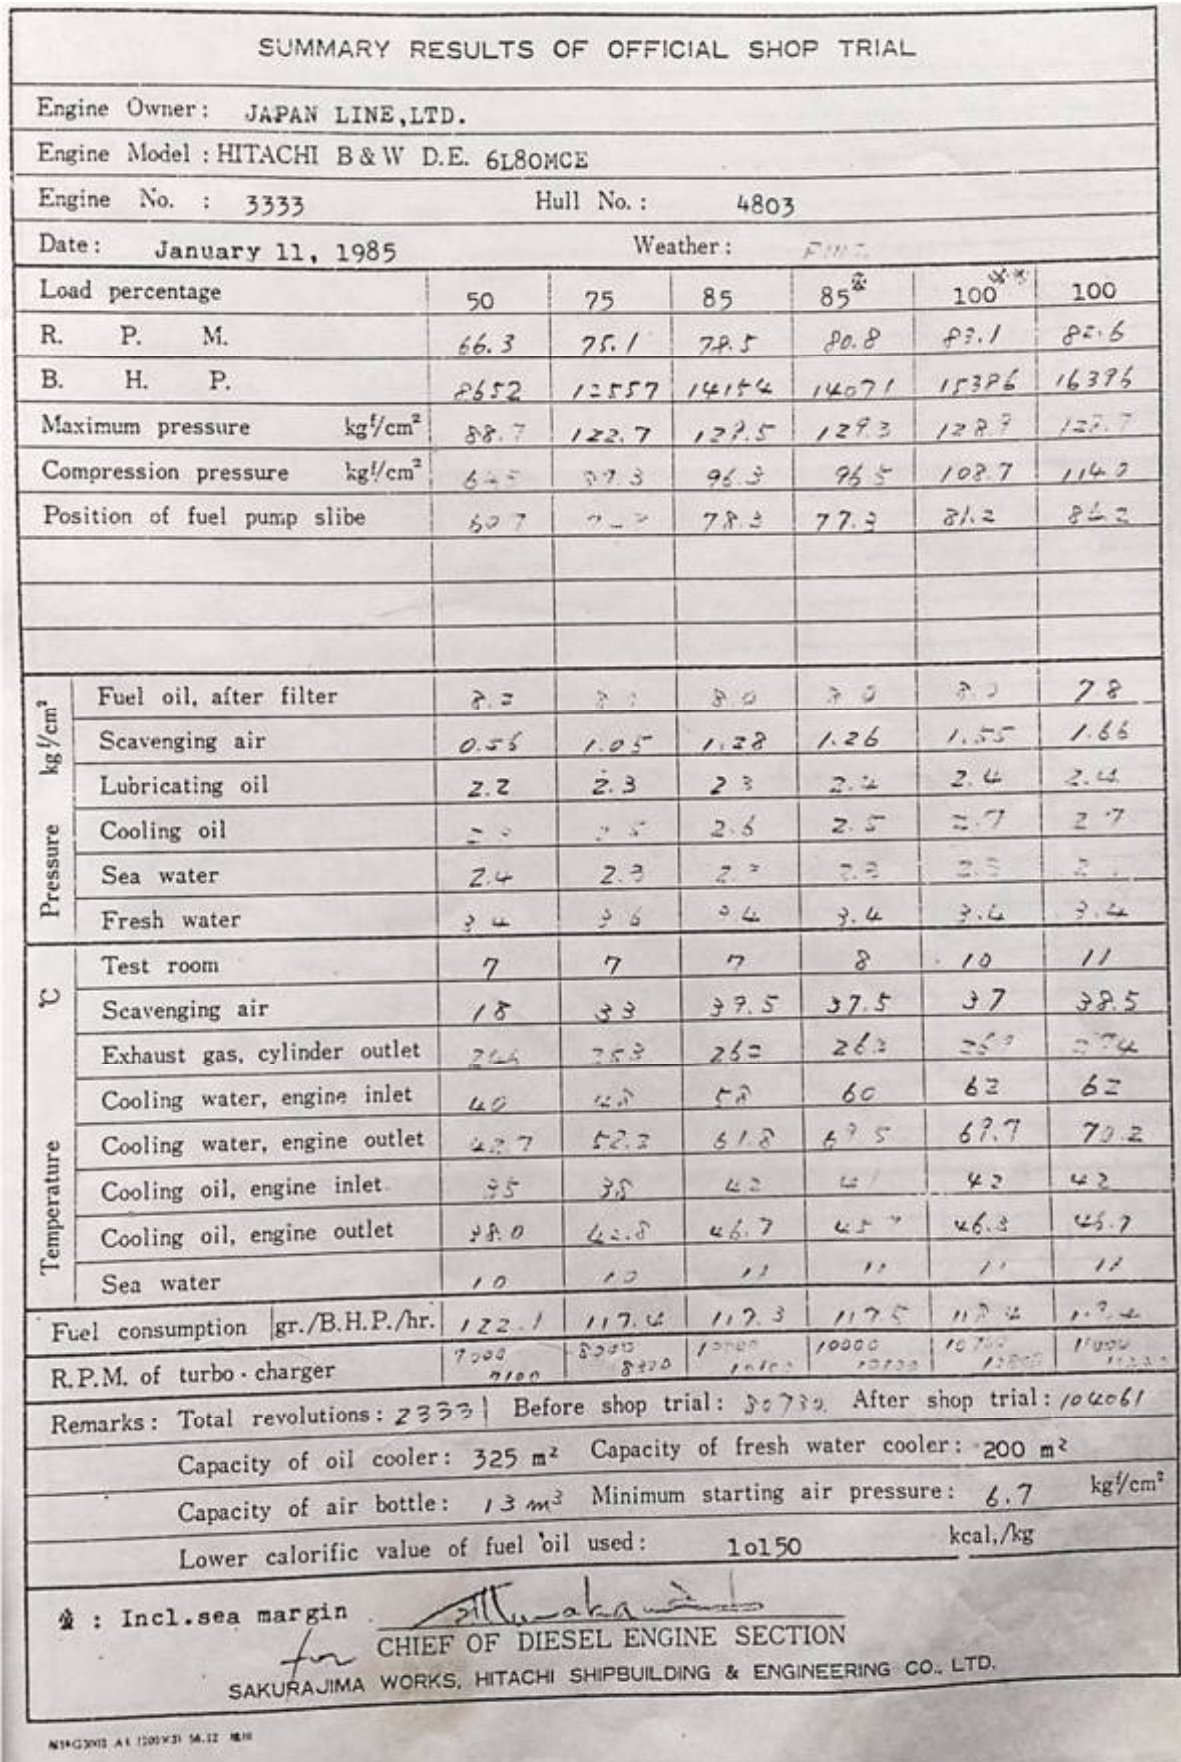 SUMMARY RESULTS OF OFFICIAL SHOP TRIAL
Engine Owner: JAPAN LINE,LTD.
Engine Model: HITACHI B&W D.E. 6L80MCE
Engine No. : 3333 Hull No.: 4803
Date: January 11, 1985 Weather:
Load percentage 50 75 85 85※ 100※※ 100
R. P. M. 66.3 75.1 78.5 80.8 83.1 82.6
B. H. P. 8652 12557 14154 14071 15386 16396
Maximum pressure kgf/cm² 88.7 122.7 129.5 129.3 128.9
Compression pressure kgf/cm² 96.3 96.5 108.7 114.0
Position of fuel pump slibe 60.7 78.3 77.3 81.2
Pressure kgf/cm²
Fuel oil, after filter 8.0 8.0 7.8
Scavenging air 0.56 1.05 1.28 1.26 1.55 1.66
Lubricating oil 2.2 2.3 2.3 2.4 2.4 2.4
Cooling oil 2.6 2.5 2.7 2.7
Sea water 2.4 2.3
Fresh water 3.4 3.6 3.4 3.4 3.4 3.4
Temperature °C
Test room 7 7 7 8 10 11
Scavenging air 18 33 39.5 37.5 37 38.5
Exhaust gas, cylinder outlet 262
Cooling water, engine inlet 40 48 58 60 62 62
Cooling water, engine outlet 42.7 52.3 61.8 69.7 70.2
Cooling oil, engine inlet 35 38 42 42 42
Cooling oil, engine outlet 38.0 42.8 46.7 46.3
Sea water 10 10 11 11 11 11
Fuel consumption gr./B.H.P./hr. 122.1 117.4 117.3 117.5
R.P.M. of turbo-charger 7000 8000 10000
7100
Remarks: Total revolutions: 23331 Before shop trial: 80730 After shop trial: 104061
Capacity of oil cooler: 325 m² Capacity of fresh water cooler: 200 m²
Capacity of air bottle: 13 m³ Minimum starting air pressure: 6.7 kgf/cm²
Lower calorific value of fuel oil used: 10150 kcal,/kg
※ : Incl.sea margin
for CHIEF OF DIESEL ENGINE SECTION
SAKURAJIMA WORKS, HITACHI SHIPBUILDING & ENGINEERING CO., LTD.